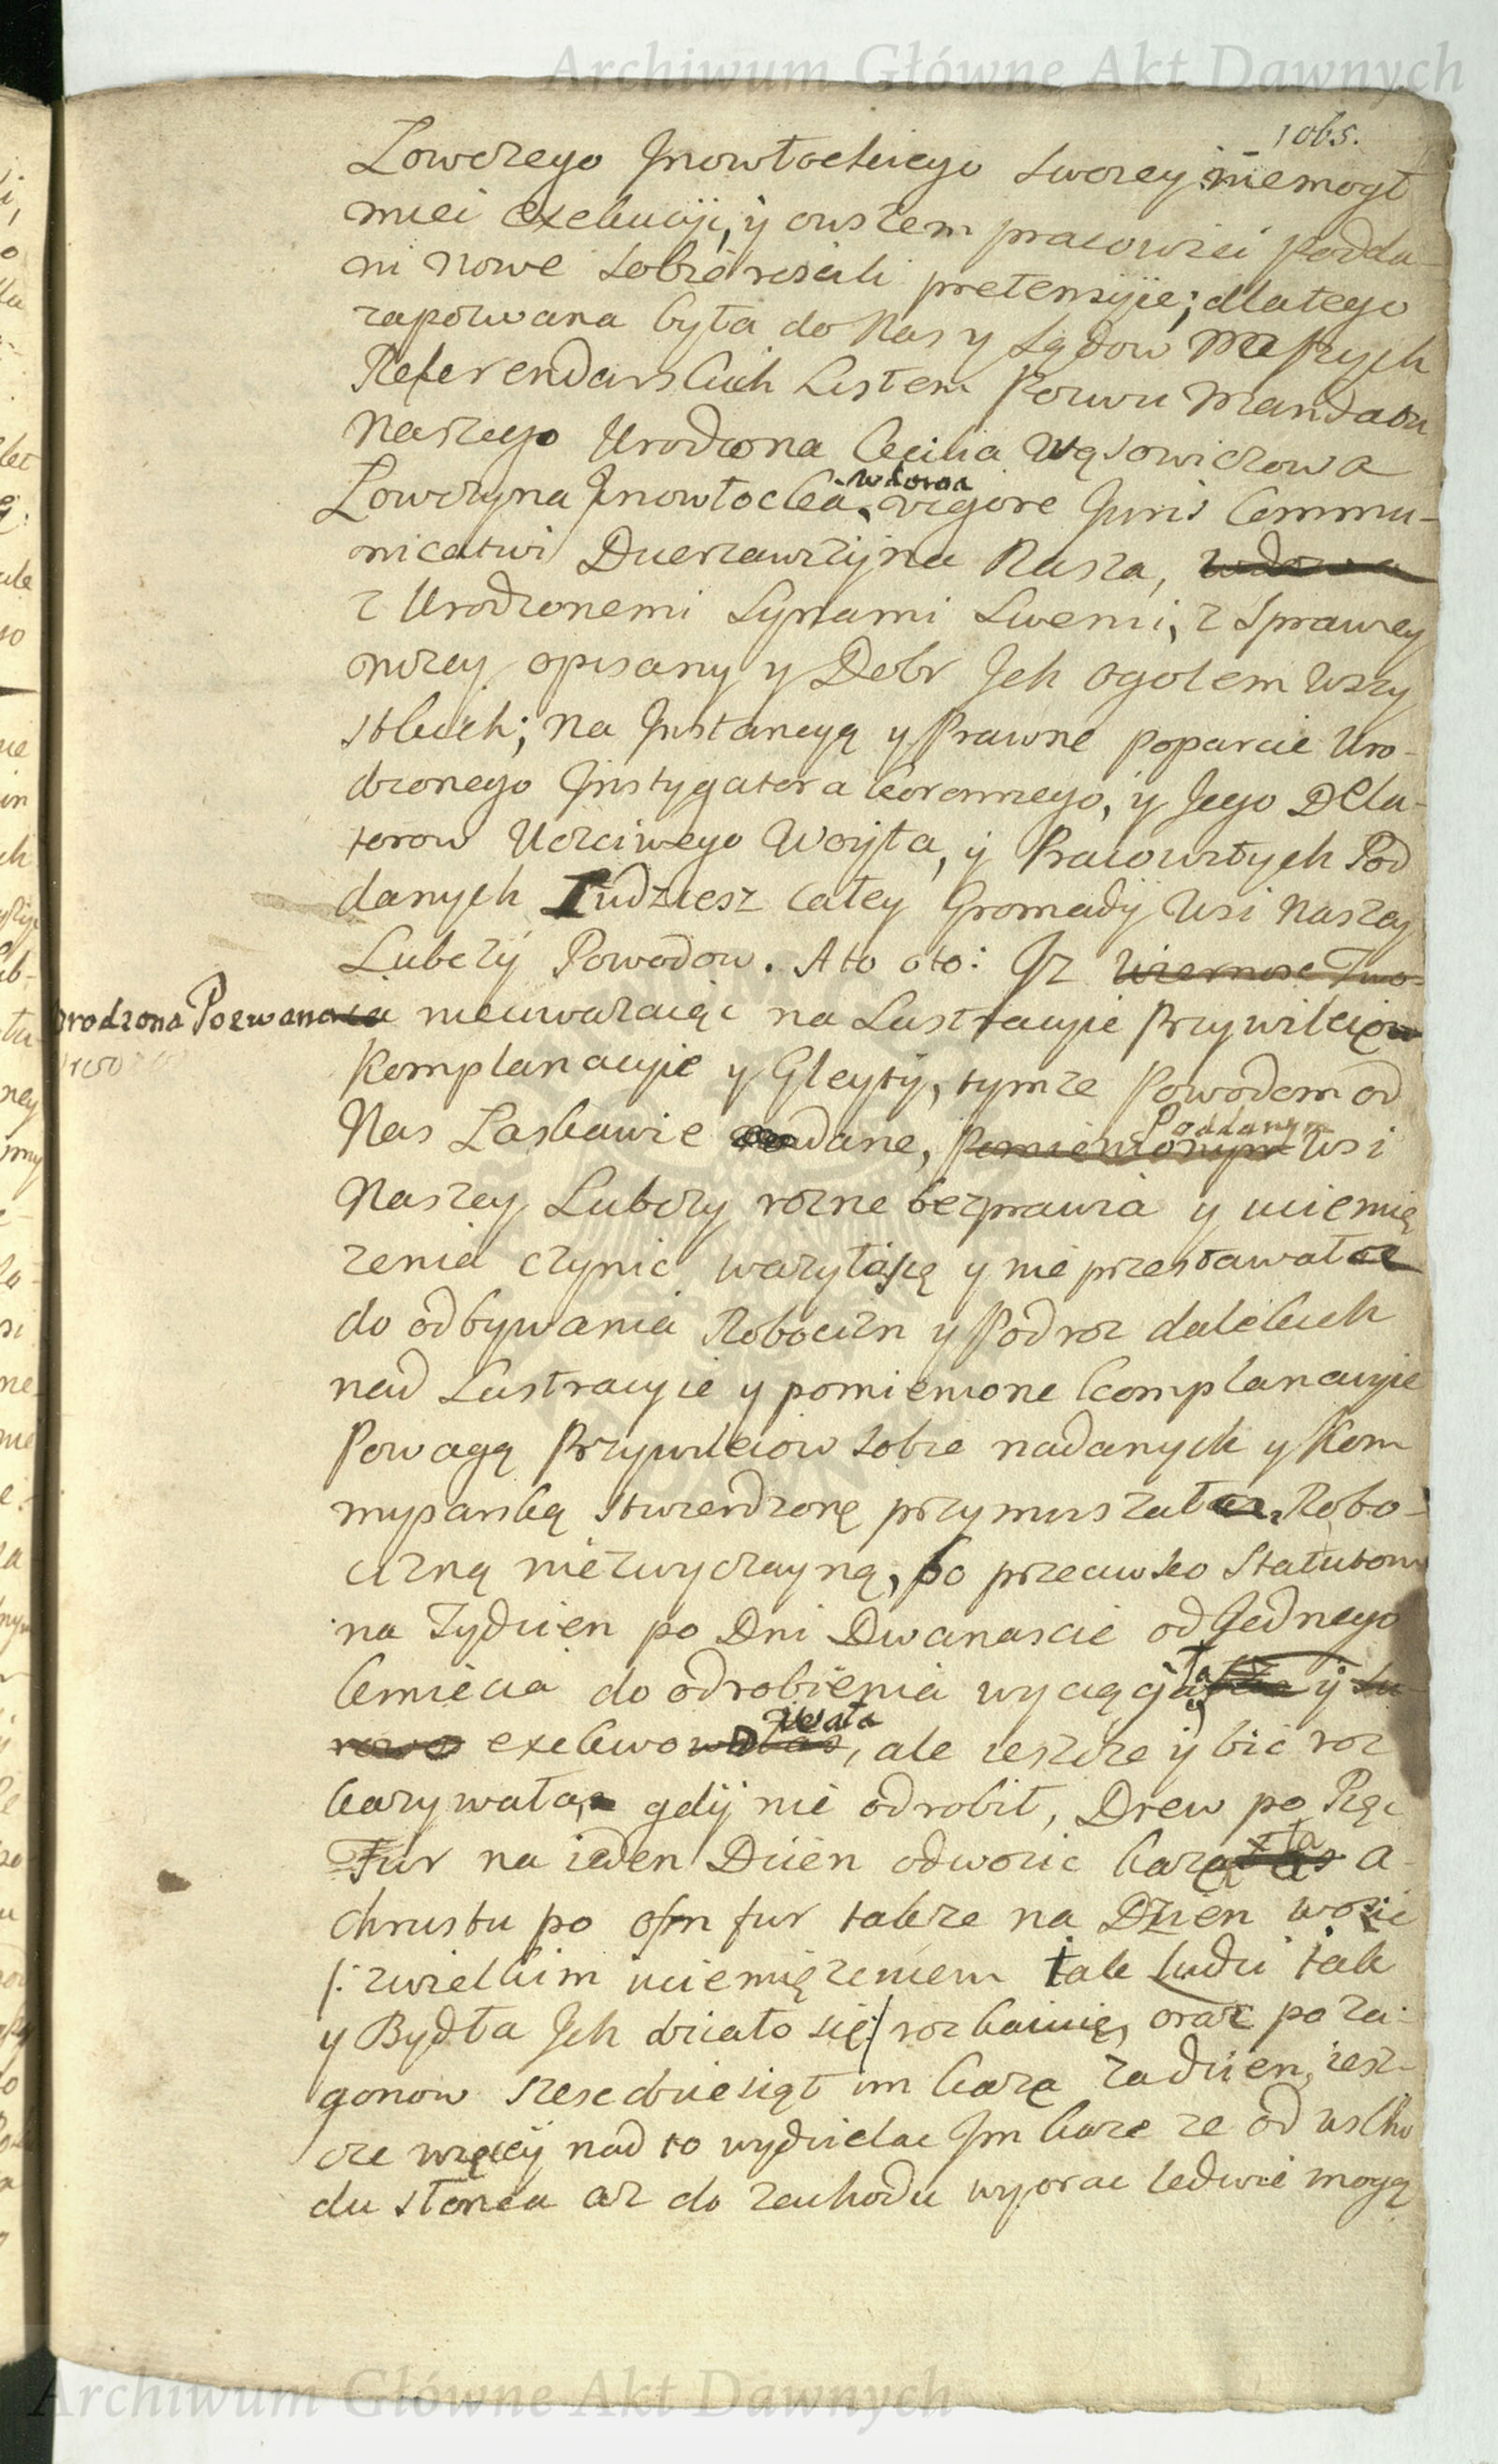 Archiwum Główne Akt Dawnych
1065.
Łowczego Jnowłockiego swoiey niemogł
miei exekucji, y owszem pracowici podda-
ni nowe sobie roscili pretensyje; dlatego
zapozwana była do Nas y Sądow Naszych
Referendarskich Listem Pozwu Mandatu
Naszego Urodzona Cecilia Wąsowiczowa
Łowczyna Jnowłocka, wdowa vigore Juris Commu-
nicativi Dzierzawczyna Nasza, wdowa
z Urodzonemi Synami Swemi, z Sprawey
nizey opisany y Dobr Jch ogołem wszy
stkich; na Jnstancyą y Prawne poparcie Uro-
dzonego Jnstygatora Koronnego, y Jego Dela-
torow Uczciwego Woyta, y Pracowitych Pod
danych Tudziesz całey Gromady Wsi Naszey
Lubczy Powodow. A to oto: Jz Wiernosc Two-
Urodzona Pozwana ia nieuwazaiąc na Lustracyie Przywileiow
Komplanacyie y Gleyty, tymze Powodom od
Nas Łaskawie nadane, Pomienionym Poddanym Wsi
Naszey Lubczy rozne bezprawia y uciemię
zenia czynic wazyła się y nie przestawała
do odbywania Robocizn y Podroz dalekich
nad Lustracyie y pomienione Komplanacyie
Powagą Przywileiow sobie nadanych y Kom
myssarską stwierdzoną przymuszała, Robo-
cizną niezwyczayną, bo przeciwko Statutom
na Tydzien po Dni Dwanascie od Jednego
Kmiecia do odrobienia wyciągała y su
rowo exekwowała, ale ieszcze y bić roz
kazywała, gdy nie odrobił, Drew po Pięc
Fur na ieden Dzien odwozic kazała a
chrustu po osm fur takze na Dzien wozic
/: z wielkim uciemięzeniem tak Ludzi iak
y Bydła Jch działo się:/ rozkaiuię, orac po za-
gonow szescdziesiąt im kazą za dzien, iesz-
cze więcey nad to wydzielac Jm kaze ze od wscho
du słonca az do zachodu wyorac ledwie mogą
Archiwum Główne Akt Dawnych